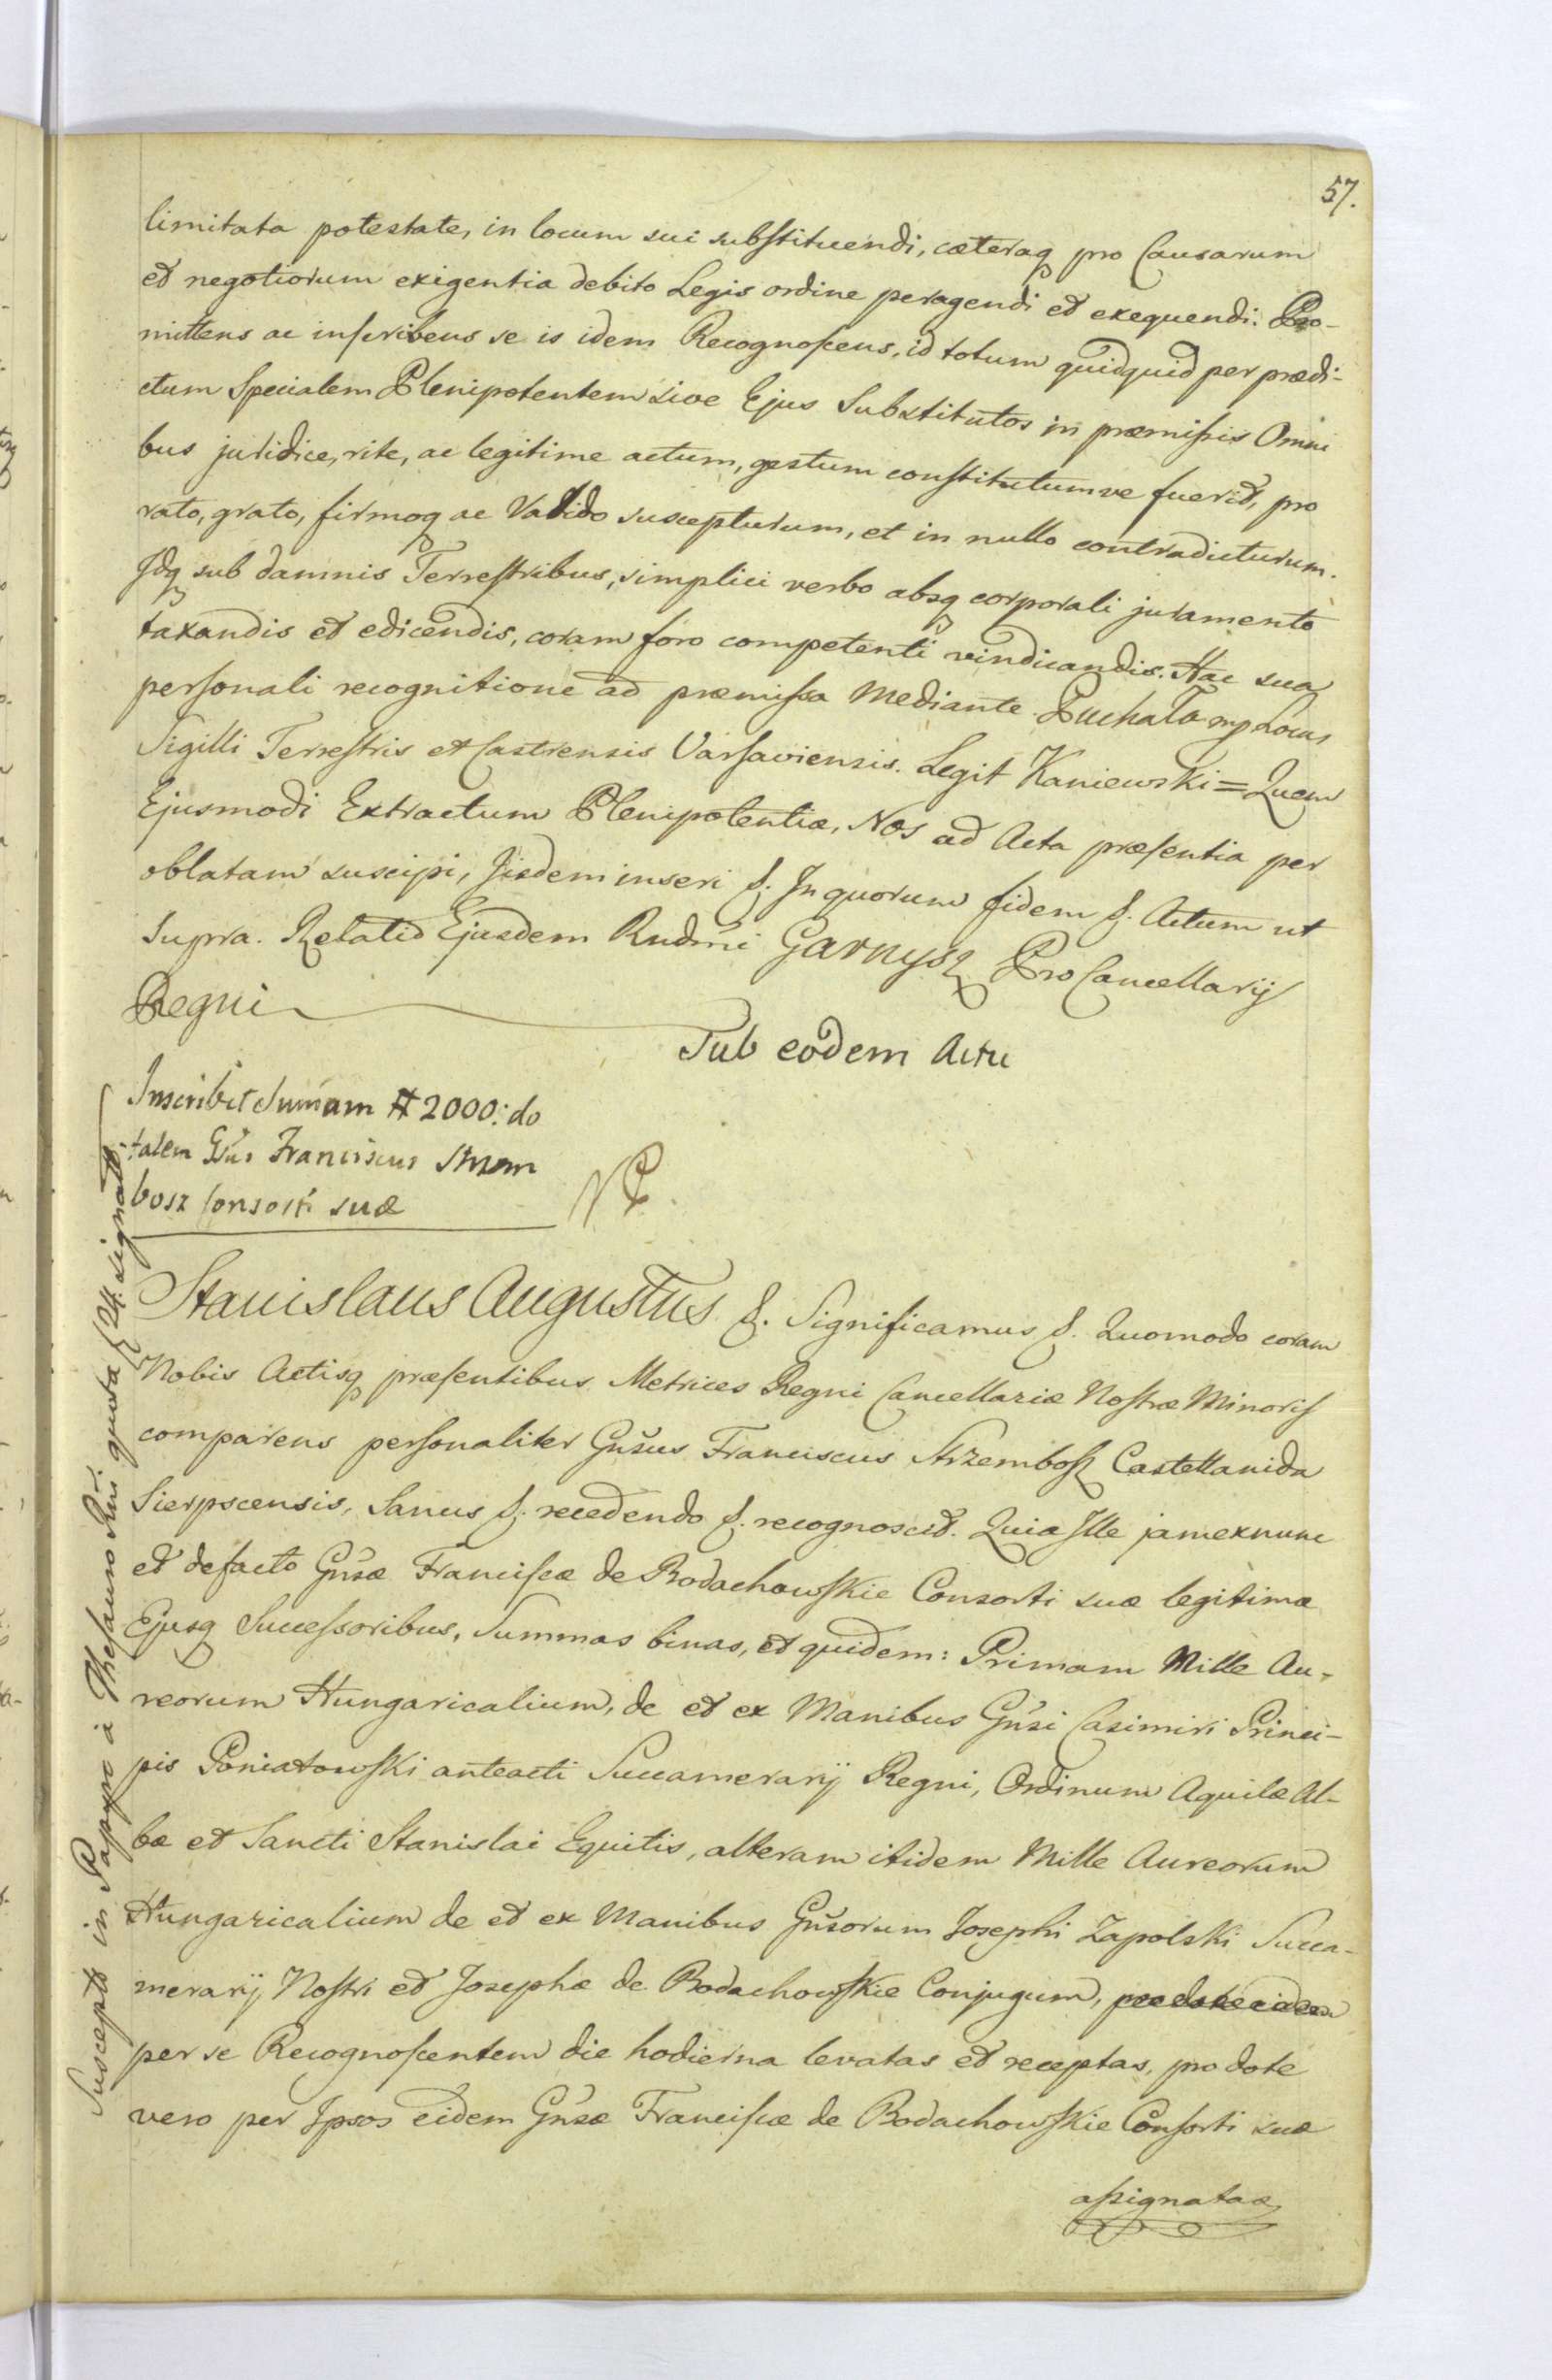 57.
limitata potestate, in locum sui substituendi, cæteraq pro Causarum
et negotiorum exigentia debito Legis ordine peragendi et exequendi: Pro-
mittens ac inscribens se is idem Recognoscens, id totum quidquid per prædi-
ctum Specialem Plenipotentem sive Ejus Substitutos in præmissis Omni
bus juridice, rite, ac legitime actum, gestum constitutumve fuerit, pro
rato, grato, firmoq ac Valido suscepturum, et in nullo contradicturum.
Idq sub damnis Terrestribus, simplici verbo absq corporali juramento
taxandis et edicendis, coram foro competenti vindicandis. Hac sua
personali recognitione ad præmissa Mediante. Puchała mp Locus
Sigilli Terrestris et Castrensis Varsaviensis. Legit Kaniewski = Quem
Ejusmodi Extractum Plenipotentiæ, Nos ad Acta præsentia per
oblatam suscipi, Iisdem inseri &. In quorum fidem &. Actum ut
supra. Relatio Ejusdem Rndmi Garnysz ProCancellarij
Regni
Sub eodem Actu
Inscribit Sumam # 2000: do
talem Gsus Franciscus Strzem
bosz Consorti suæ
Stanislaus Augustus &. Significamus &. Quomodo coram
Nobis Actisq præsentibus Metrices Regni Cancellariæ Nostræ Minoris
comparens personaliter Gnsus Franciscus Strzembosz Castellanida
Sierpscensis, Sanus &. recedendo &. recognoscit. Quia Ille jam exnunc
et defacto Gnsæ Franciscæ de Bodachowskie Consorti suæ legitimæ
Ejusq Successoribus, Summas binas, et quidem: Primam Mille Au-
reorum Hungaricalium, de et ex Manibus Gnsi Casimiri Princi-
pis Poniatowski anteacti Succamerarij Regni, Ordinum Aquilæ Al-
bæ et Sancti Stanislai Equitis, alteram itidem Mille Aureorum
Hungaricalium de et ex Manibus Gnsorum Josephi Zapolski Succa-
merarij Nostri et Josephæ de Bodachowskie Conjugum, pro dote eidem
per se Recognoscentem die hodierna levatas et receptas, pro dote
vero per Ipsos eidem Gnsæ Franciscæ de Bodachowskie Consorti suæ
assignatas
Suscepta in Papyro à Thesauro Rni quota f 24. signato